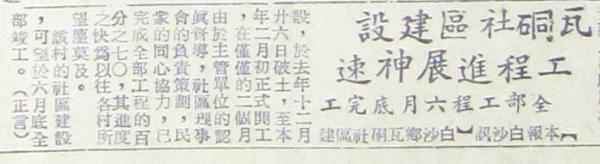 瓦硐社區建設
工程進展神速
全部工程六月底完工
【本報白沙訊】白沙鄉瓦硐社區建
設,於去年十二月
廿六日破土,至本
年二月初正式開工
,在僅僅的二個月
由於主管單位的認
眞督導,社區理事
會的負責策劃,民
衆的同心協力,已
完成全部工程的百
分之七〇,其進度
之快爲以往各村所
望塵莫及。
該村的社區建設
,可望於六月底全
部竣工。(正言)